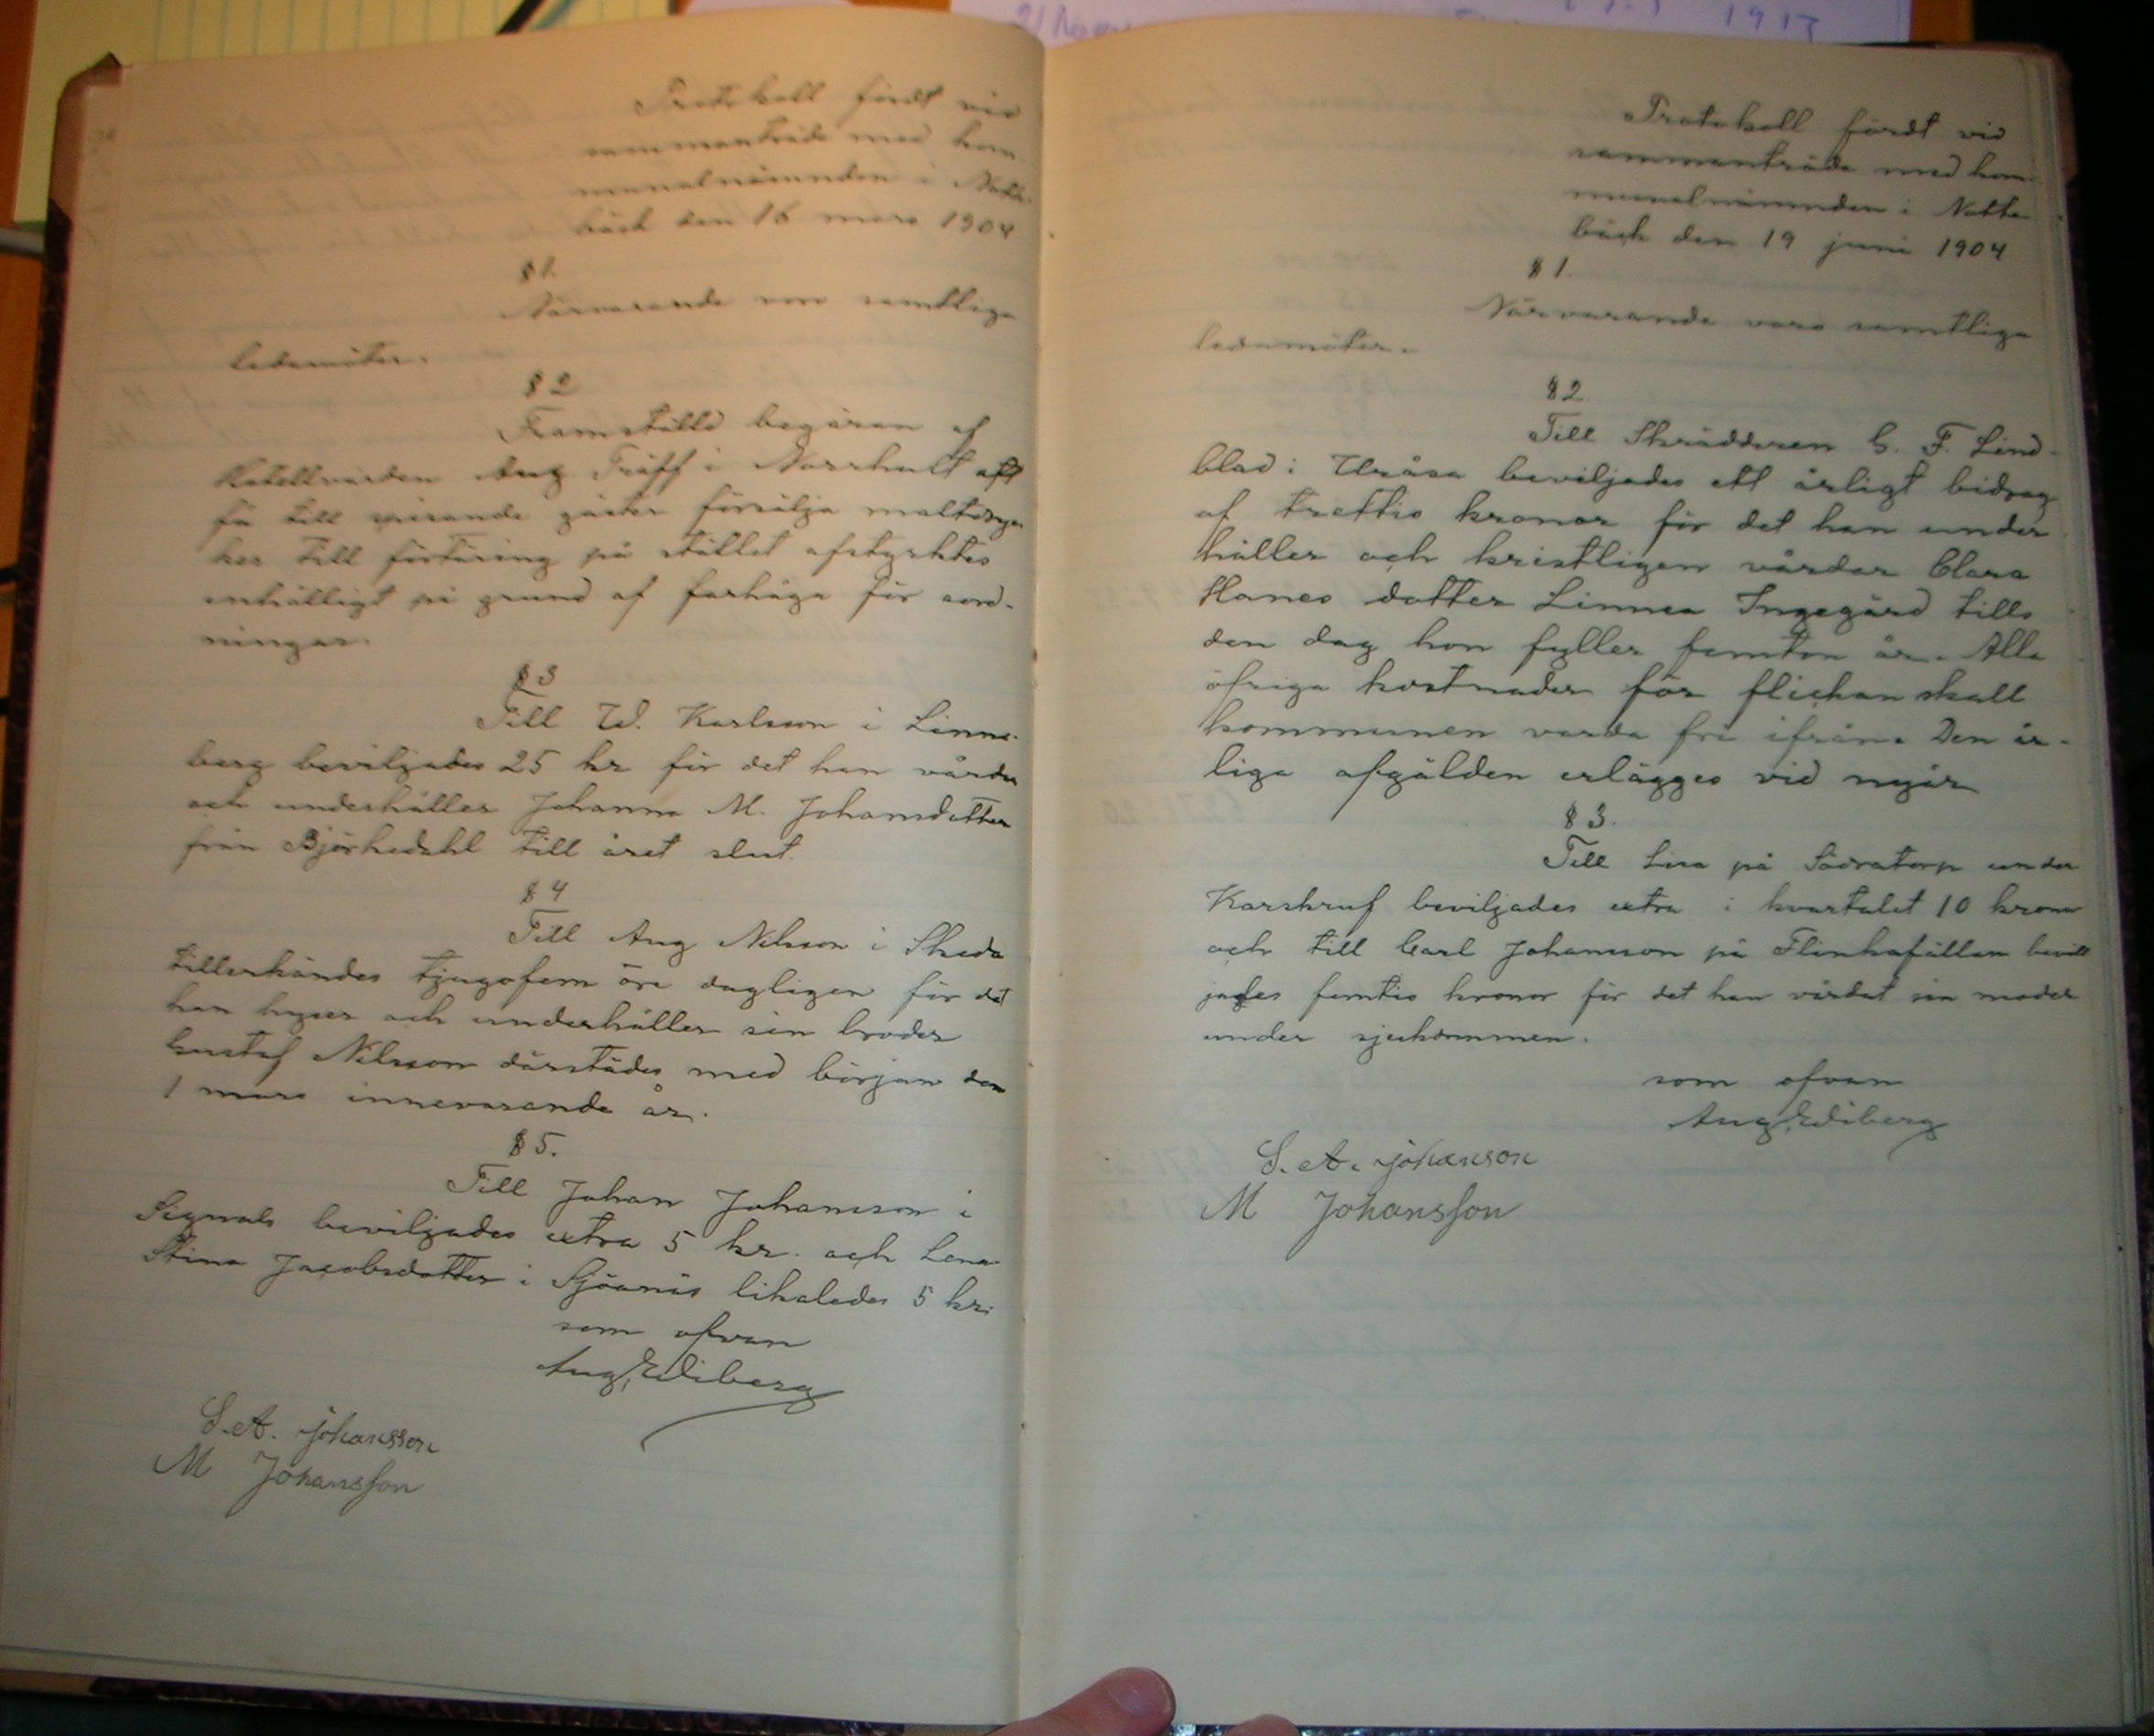 Protokoll fördt vid
sammanträde med kom-
munalnämnden i Notte-
bäck den 16 mars 1904
§ 1.
Närvarande voro samtliga
ledamöter.
§ 2
Framställd begäran af
Hotellvärden Aug Träff i Norrhult att
få till spisande gäster försälja maltdryc
ker till förtäring på stället afstyrktes
enhälligt på grund af farhåga för oord-
ningar.
§ 3
Till W. Karlsson i Linne-
berg beviljades 25 kr för det han vårdar
och underhåller Johanna M. Johansdotter
från Björkedahl till året slut.
§ 4
Till Aug Nilsson i Skeda
tillerkändes tjugofem öre dagligen för det
han hyser och underhåller sin broder
Gustaf Nilsson därstädes med början den
1 mars innevarande år.
§ 5.
Till Johan Johansson i
Signals beviljades extra 5 kr. och Lena
Stina Jacobsdotter i Sjöanäs likaledes 5 kr.
som ofvan
Aug. Wiberg
S. A. Johansson
M Johansson
21
1917
Protokoll fördt vid
sammanträde med kom-
munalnämnden i Notte-
bäck den 19 juni 1904
§ 1.
Närvarande voro samtliga
ledamöter.
§ 2.
Till Skräddaren G. F. Lind-
blad i Uråsa beviljades ett årligt bidrag
af trettio kronor för det han under
håller och kristligen vårdar Clara
Hanes dotter Linnea Ingegärd tills
den dag hon fyller femton år. Alla
öfriga kostnader för flickan skall
kommunen varda fri ifrån. Den år-
liga afgälden erlägges vid nyår
§ 3.
Till Lisa på Södratorp under
Karskruf beviljades extra i kvartalet 10 kronor
och till Carl Johansson på Flinkafällan bevil
jades femtio kronor för det han vårdat sin moder
under sjukdommen.
som ofvan
Aug. Wiberg
S. A. Johanson
M Johansson